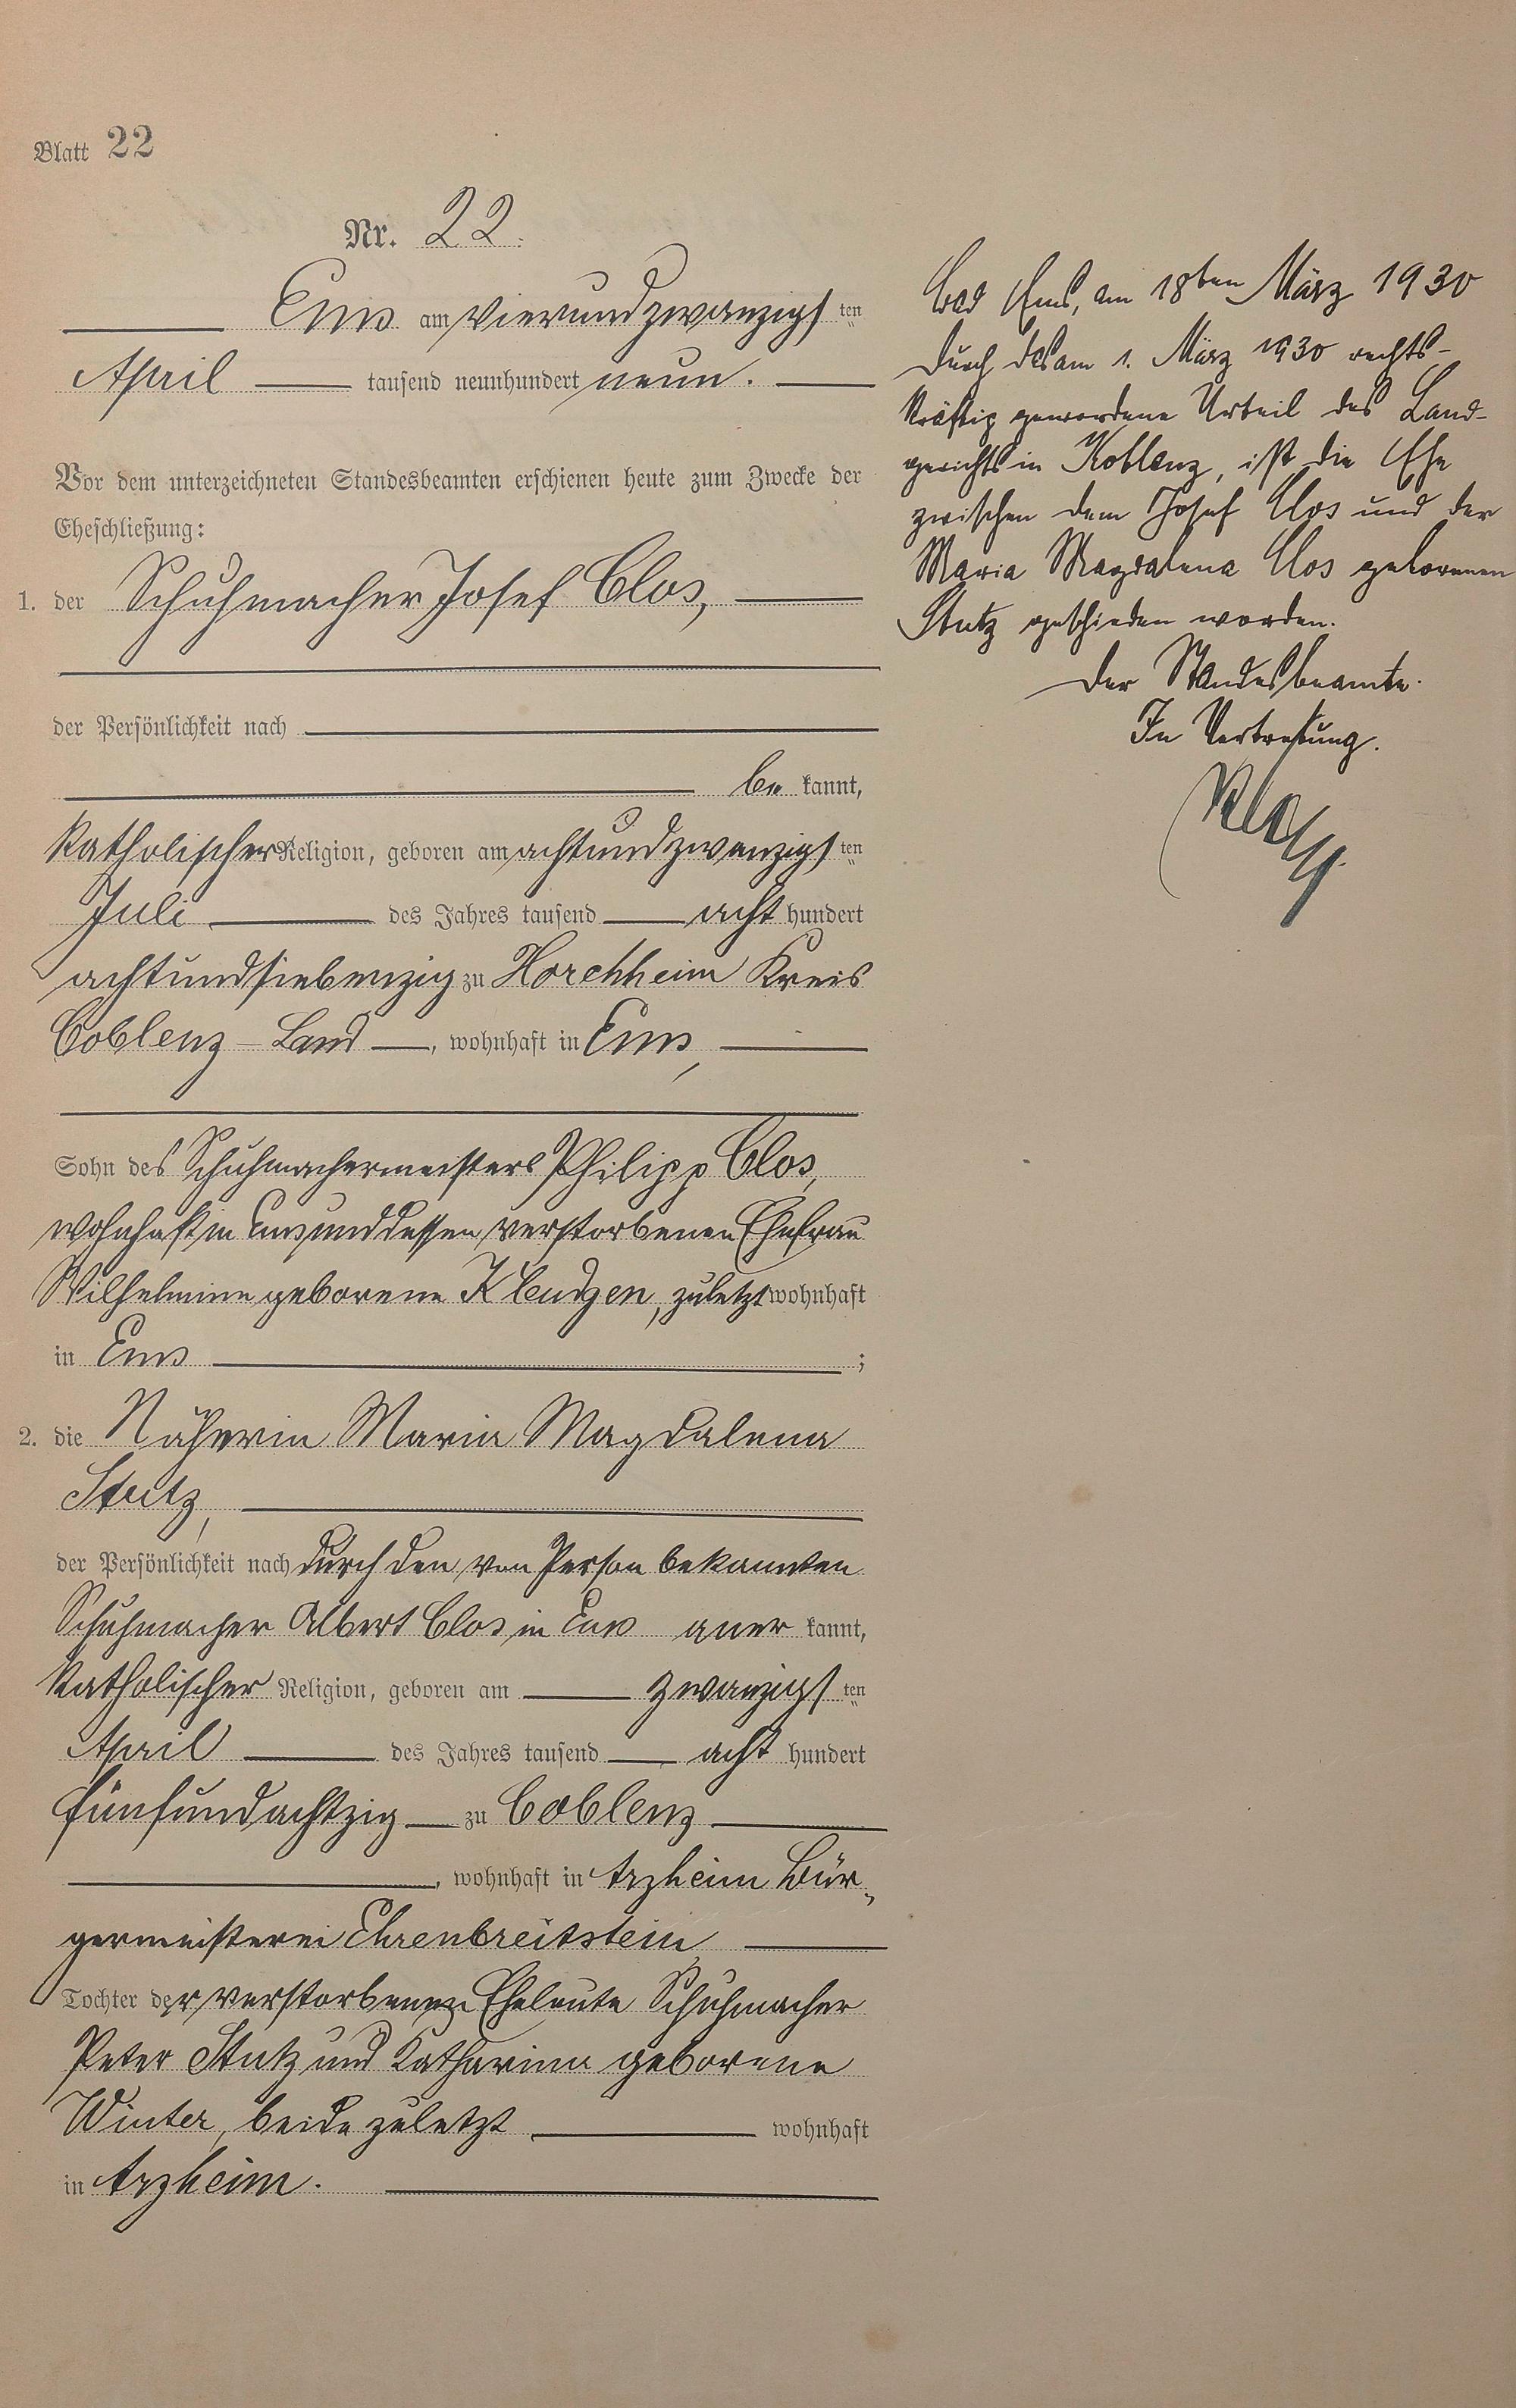 Blatt 22
Nr. 22.
Ems am vierundzwanzigsten
April tausend neunhundert neun.
Vor dem unterzeichneten Standesbeamten erschienen heute zum Zwecke der
Eheschließung:
1. der Schuhmacher Josef Clos,
der Persönlichkeit nach
be kannt,
katholischer Religion, geboren am achtundzwanzigsten
Juli des Jahres tausend acht hundert
achtundsiebenzig zu Horchheim Kreis
Coblenz-Land, wohnhaft in Ems,
Sohn des Schuhmachermeisters Philipp Clos,
wohnhaft in Ems und dessen verstorbenen Ehefrau
Wilhelmine geborene, zuletzt wohnhaft
in Ems ;
2. die Näherin Maria Magdalena
Stutz,
der Persönlichkeit nach durch den von Person bekannten
Schuhmacher Albert Clos in Ems aner kannt,
katholischer Religion, geboren am zwanzigsten
April des Jahres tausend acht hundert
fünfundachtzig zu Coblenz
, wohnhaft in Arzheim Bür-
germeisterei Ehrenbreitstein
Tochter der verstorbenen Eheleute Schuhmacher
Peter Stutz und Katharina geborene
Winter, beide zuletzt wohnhaft
in Arzheim.
Bad Ems, am 18ten März 1930
Durch das am 1. März 1930 rechts-
kräftig gewordene Urteil des Land-
gerichts in Koblenz, ist die Ehe
zwischen dem Josef Clos und der
Maria Magdalena Clos geborenen
Stutz geschieden worden.
Der Standesbeamte.
In Vertretung.